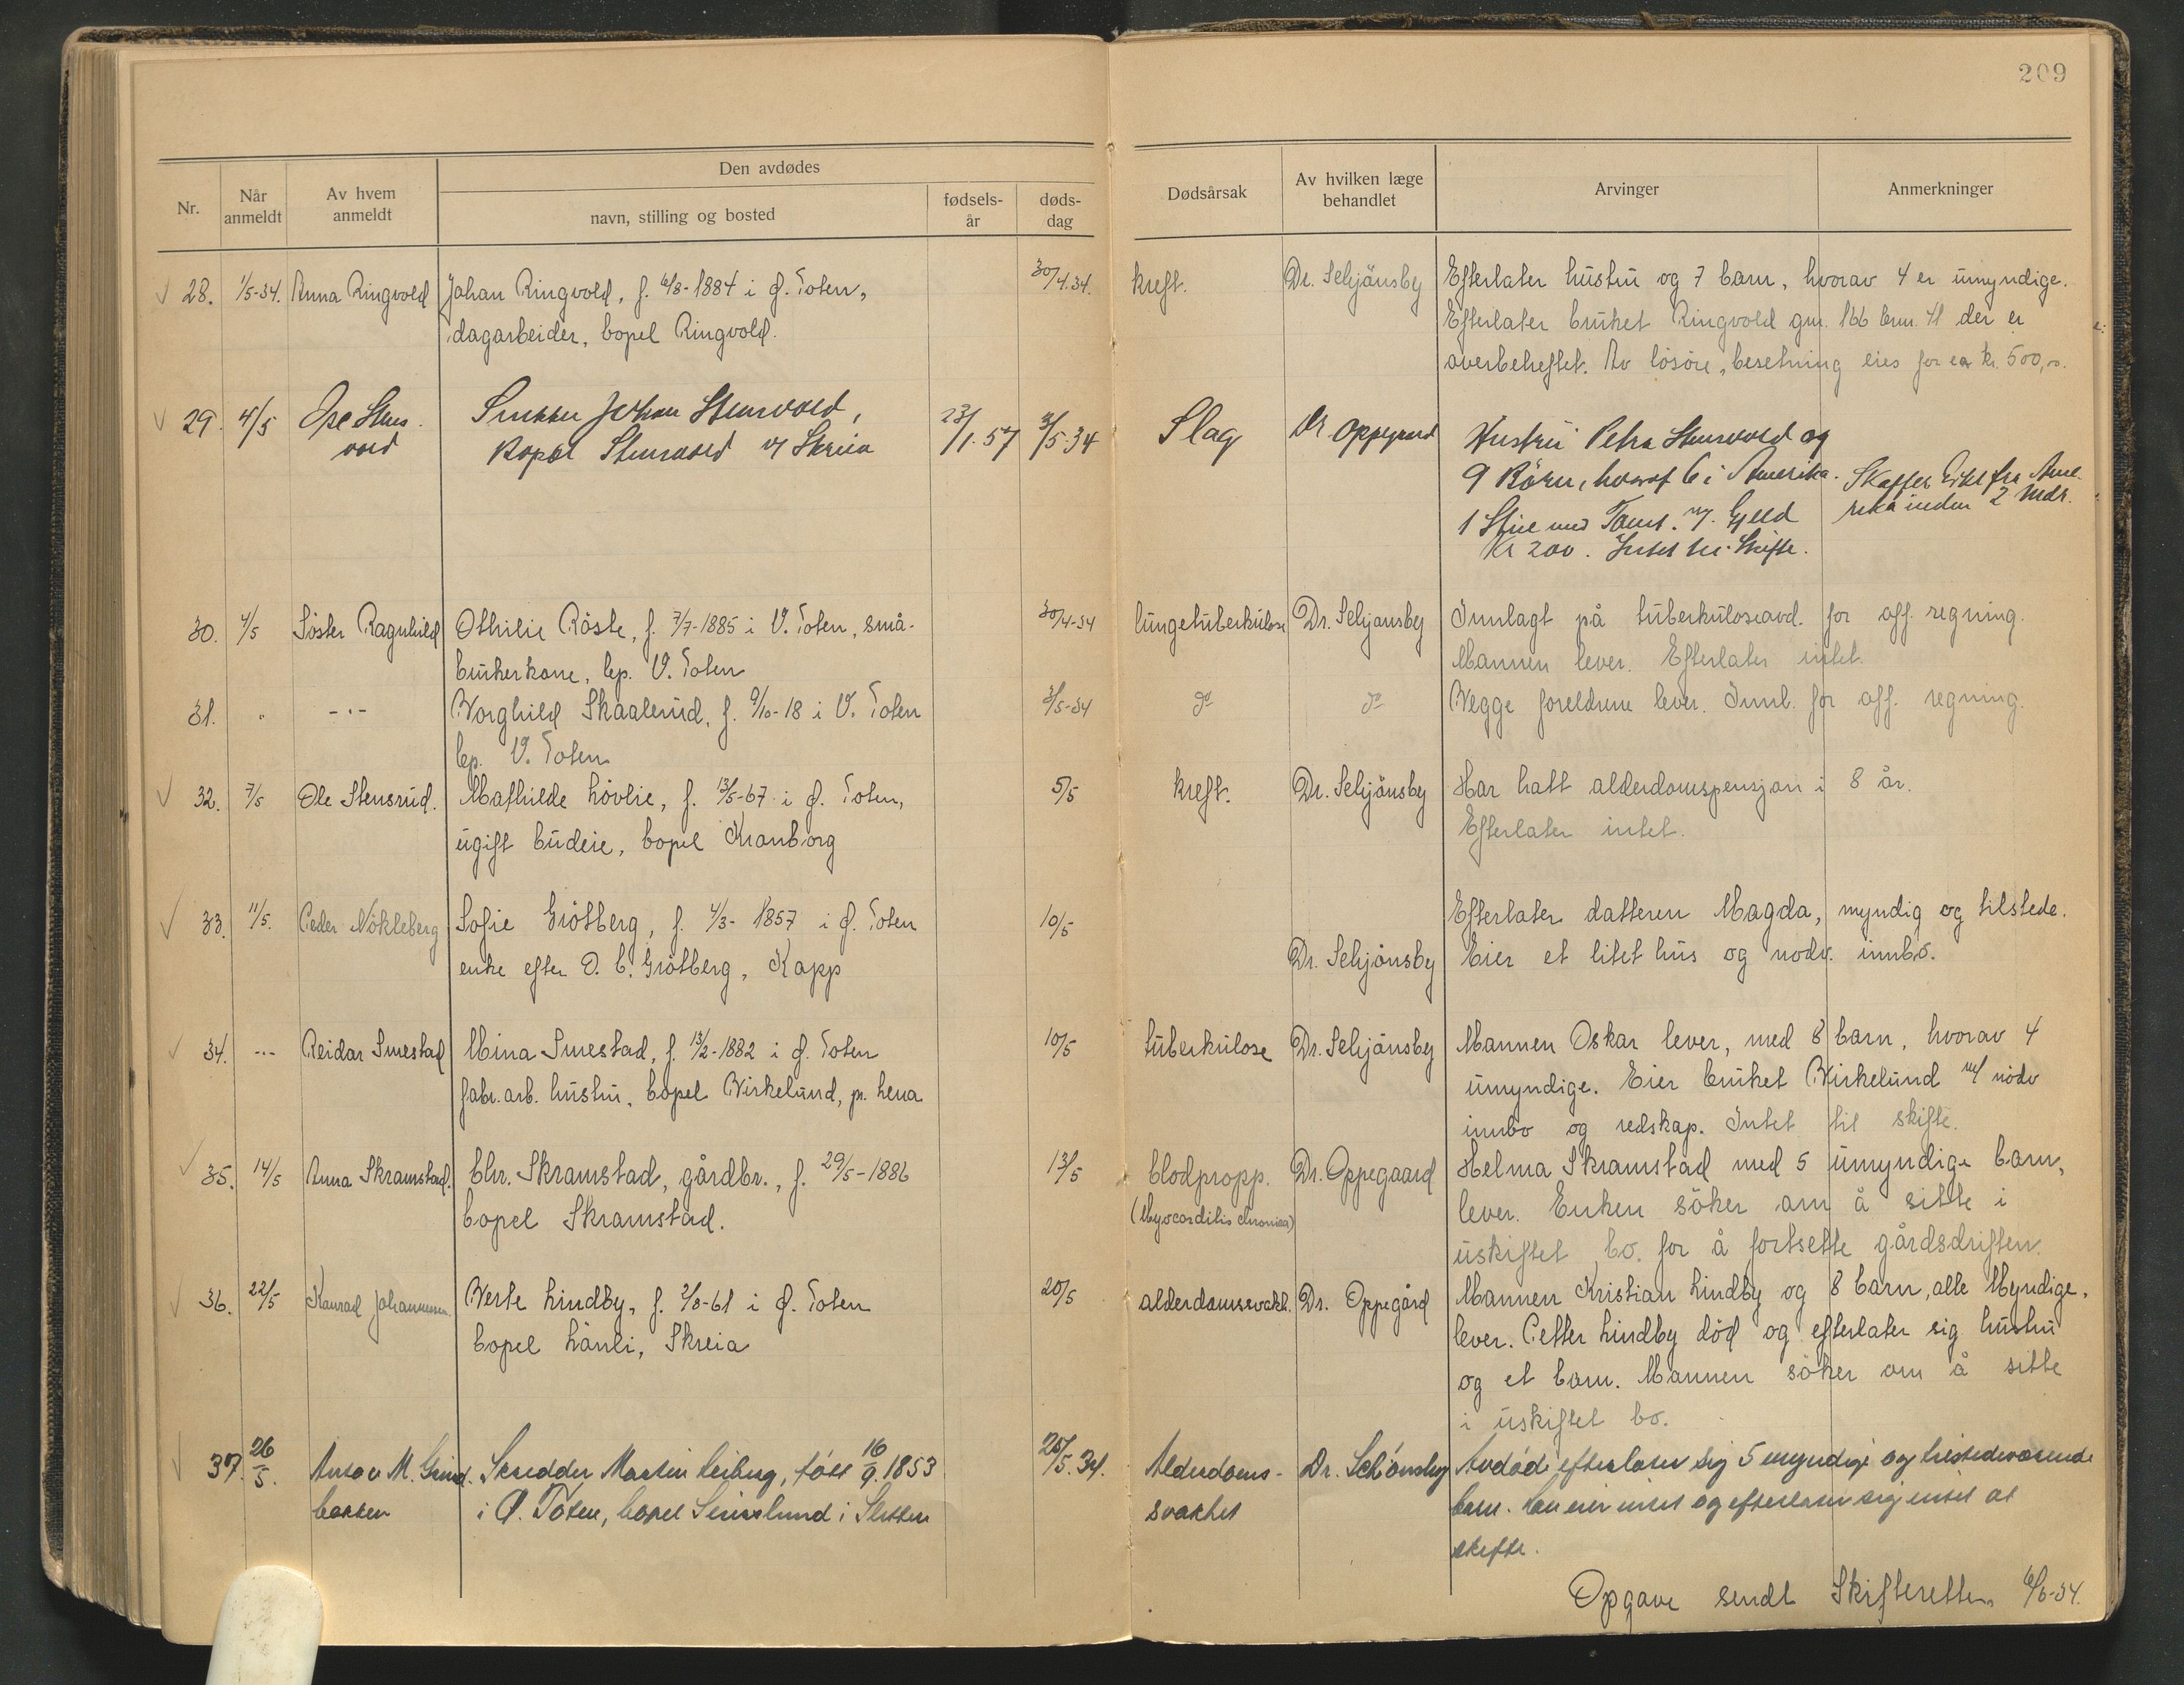 209
Den avdødes
Nr.
Når anmeldt
Av hvem anmeldt
navn, stilling og bosted
fødsels-år
døds-dag
Dødsårsak
Av hvilken læge behandlet
Arvinger
Anmerkninger
28. 1/5-34. Anna Ringvold Johan Ringvold, f. 6/8-1884 i Ø. Toten, 30/4.34. kreft. Dr. Schjönsby Efterlater hustru og 7 barn, hvorav 4 er umyndige.
dagarbeider, bopel Ringvold. Efterlater bruket Ringvold gnr. 166 brnr. 41 der er
overbeheftet. Av lösöre, besetning eies for ca kr. 500,00.
29. 4/5 Johan Stensvold, 23/1.57 3/5.34 Slag Dr. Oppegaard Hustru Petra Stensvold og
vold Bopæl Stensvold v/ Skreia 9 Börn, hvoraf 6 i Amerika. Skaffer fra Ame-
1 Stue med Tomt. m/ Gjeld rika inden 2 Mdr.
Kr 200. Intet til Skifte.
30. 4/5 Söster Ragnhild Othilie Röste, f. 7/7-1885 i V. Toten, små- 30/4-34 lungetuberkulose Dr. Schjönsby Innlagt på tuberkuloseavd. for off. regning.
brukerkone, bp. V. Toten Mannen lever. Efterlater intet.
31. " -"- Borghild Skaalerud, f. 9/10-18 i V. Toten 3/5-34 do do Begge foreldrene lever. Innl. for off. regning.
bp. V. Toten
32. 7/5 Ole Stensrud. Mathilde Hövlie, f. 13/5-67 i Ø. Toten, 5/5 kreft. Dr. Schjönsby Har hatt alderdomspensjon i 8 år.
ugift budeie, bopel Kronborg Efterlater intet.
33. 11/5. Peder Nökleberg Sofie Grötberg, f. 4/3-1857 i Ø. Toten 10/5 Efterlater datteren Magda, myndig og tilstede.
enke efter O. C. Grötberg, Kapp Dr. Schjönsby Eier et litet hus og nödv. innbo.
34. -"- Reidar Smestad Mina Smestad, f. 13/2-1882 i Ø. Toten 10/5 tuberkulose Dr. Schjönsby Mannen Oskar lever, med 8 barn, hvorav 4
fabr.arb. hustru, bopel Birkelund, pr. Lena umyndige. Eier bruket Birkelund m/ nödv
innbo og redskap. Intet til skifte.
35. 14/5 Anna Skramstad. Chr. Skramstad, gårdbr., f. 29/5-1886 13/5 blodpropp. Dr. Oppegaard Helma Skramstad med 5 umyndige barn,
bopel Skramstad. (Myocarditis chronica) lever. Enken söker om å sitte i
uskiftet bo. for å fortsette gårdsdriften.
36. 22/5 Konrad Johannesen. Berte Lindby, f. 2/8-61 i Ø. Toten 20/5 alderdomssvakh. Dr. Oppegård Mannen Kristian Lindby og 8 barn, alle Myndige,
bopel Lånli, Skreia lever. Petter Lindby död og efterlater sig hustru
og et barn. Mannen söker om å sitte
i uskiftet bo.
37. 26/5. Anton M. Grind- Skredder Martin Leiberg, födt 16/9.1853 25/5.34. Alderdoms- Dr. Schönsby Avdöde efterlater sig 5 myndige og tilstedeværende
bakken i Ø. Toten, bopel i Sletten svakhet barn. Han eier intet og efterlater sig intet at
skifte.
Opgave sendt Skifteretten 6/6-34.